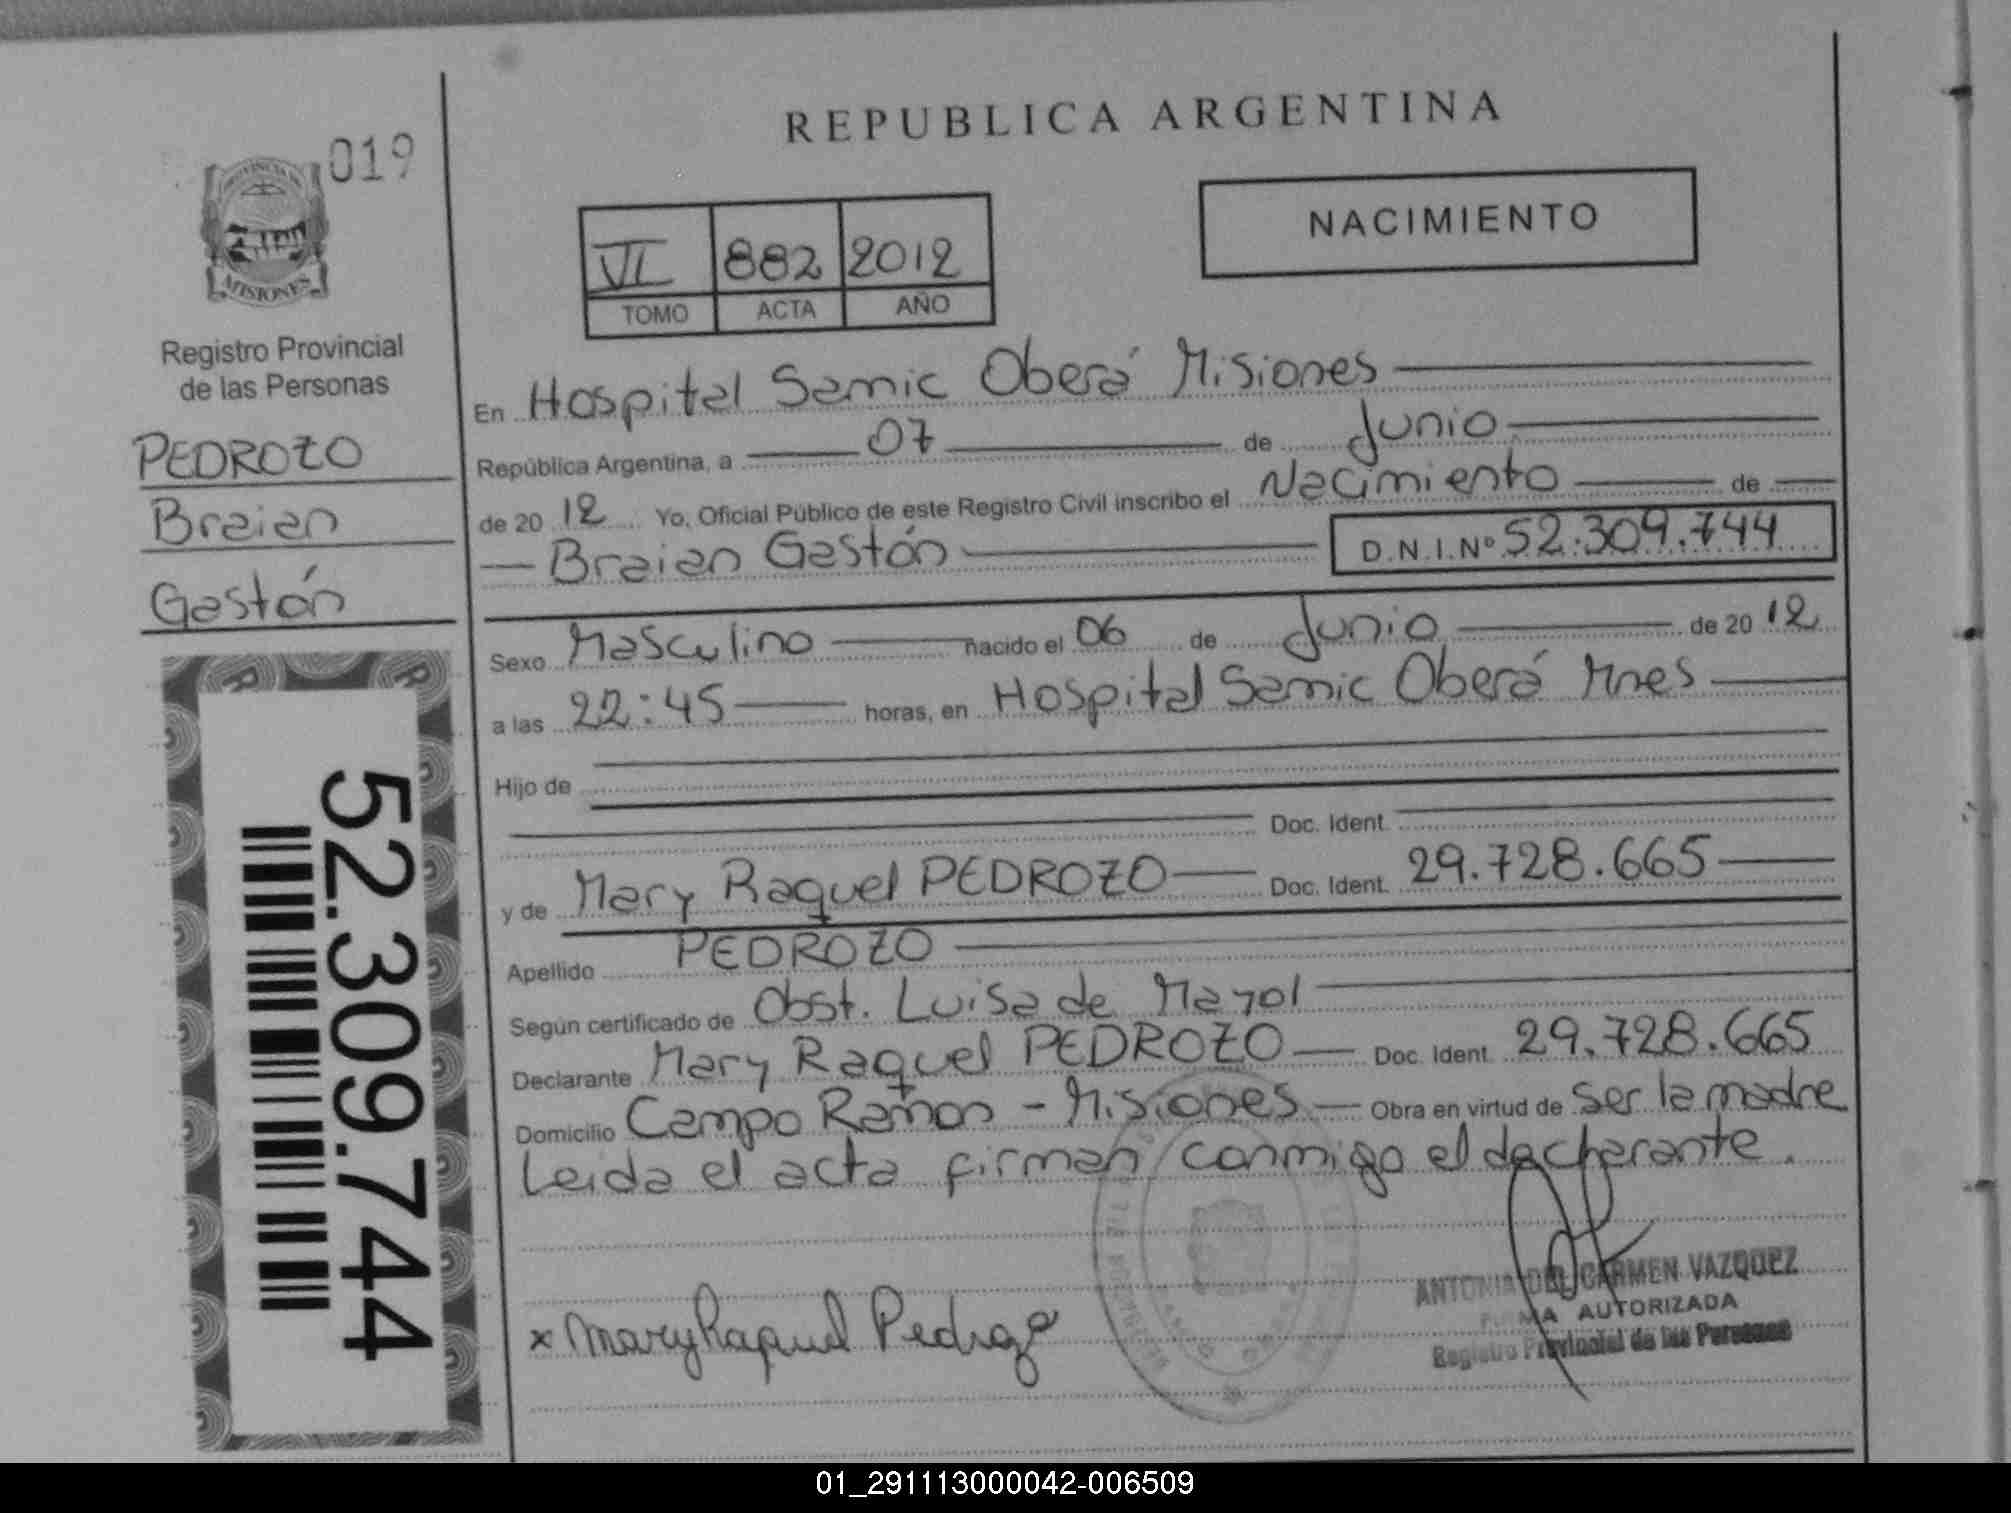 REPUBLICA ARGENTINA
019
PROVINCIA DE
MISIONES
NACIMIENTO
VI 882 2012
TOMO ACTA AÑO
Registro Provincial
de las Personas
PEDROZO
Braian
Gastón
52.309.744
En Hospital Samic Oberá Misiones
República Argentina, a 07 de Junio
de 20 12 Yo, Oficial Público de este Registro Civil inscribo el Nacimiento de
Braian Gastón D.N.I.Nº 52.309.744
Sexo Masculino nacido el 06 de Junio de 20 12
a las 22:45 horas, en Hospital Samic Oberá Mnes
Hijo de
Doc. Ident.
y de Mary Raquel PEDROZO Doc. Ident. 29.728.665
Apellido PEDROZO
Según certificado de Obst. Luisa de Mayol
Declarante Mary Raquel PEDROZO Doc. Ident. 29.728.665
Domicilio Campo Ramon - Misiones Obra en virtud de Ser la madre
Leida el acta firman conmigo el declarante.
x Mary Raquel Pedrozo
ANTONIA DEL CARMEN VAZQUEZ
FIRMA AUTORIZADA
Registro Provincial de las Personas
01_291113000042-006509